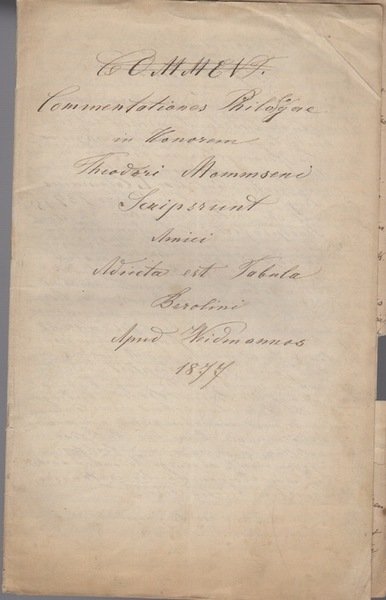 COMMENT.
Commentationes Philogae
in Honorem
Theodori Mommseni
Scripsrunt
Amici
Adiecta est Tabula
Berolini
Apud Weidmannos
1877